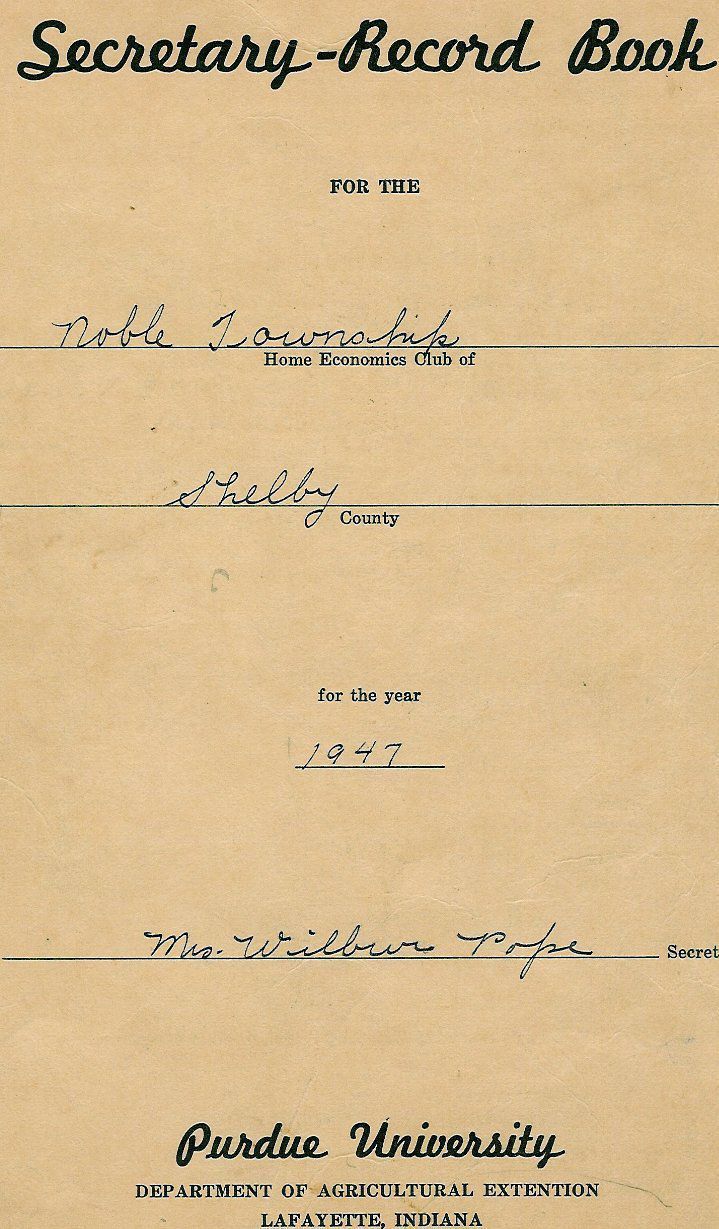 Secretary-Record Book
FOR THE
Noble Township
Home Economics Club of
Shelby
County
for the year
1947
Mrs. Wilbur Pope Secret
Purdue University
DEPARTMENT OF AGRICULTURAL EXTENTION
LAFAYETTE, INDIANA